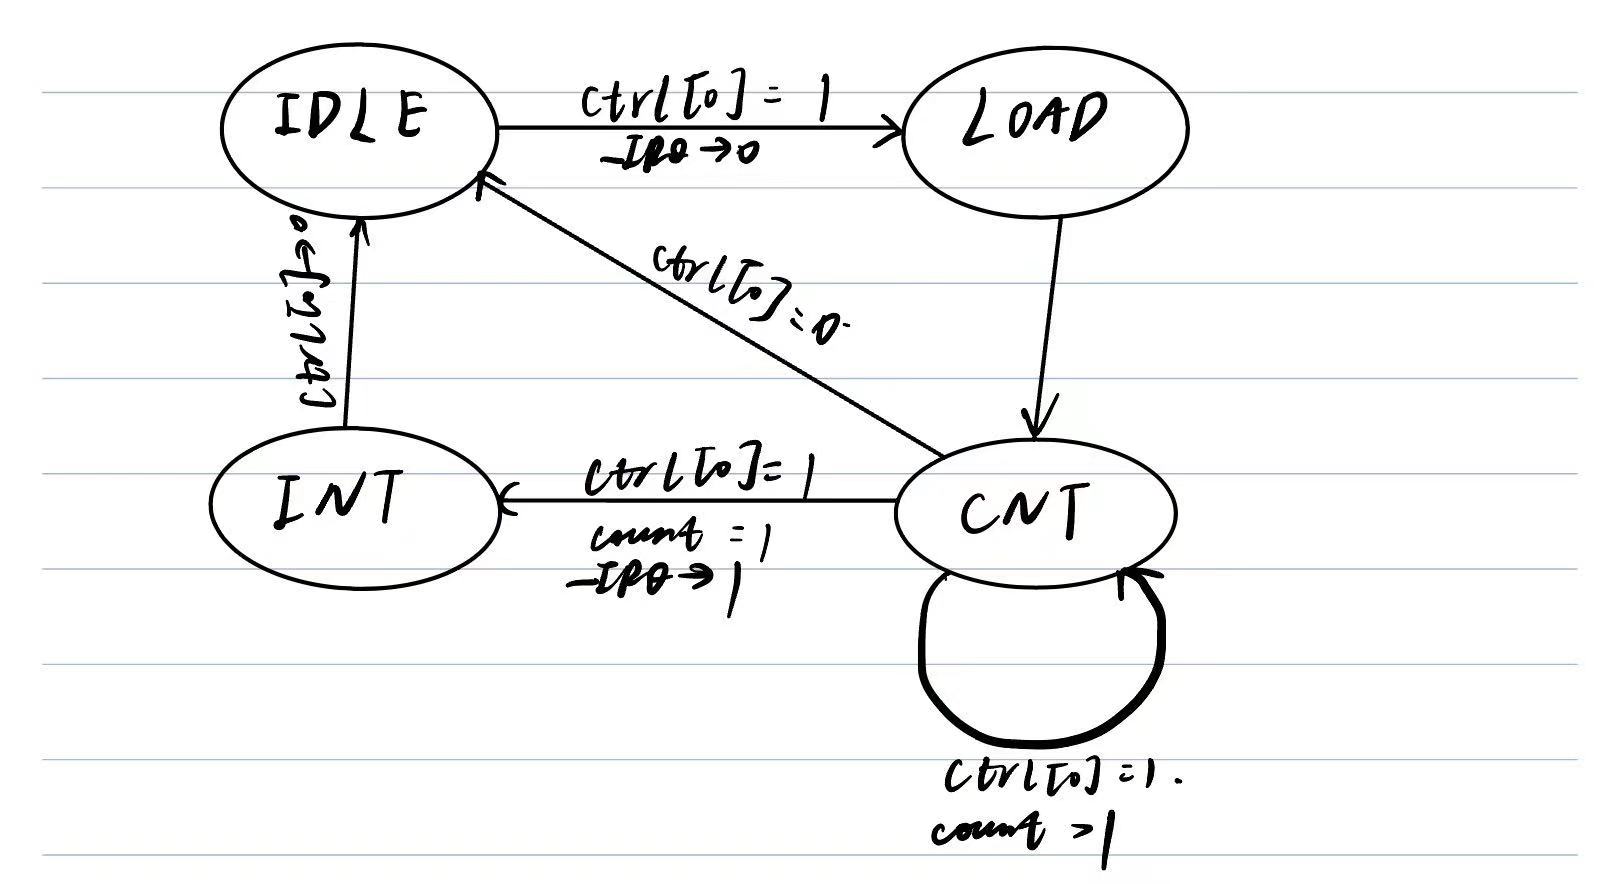 IDLE
ctrl[0] = 1
_IRQ → 0
LOAD
ctrl[0] → 0
ctrl[0] = 0
INT
ctrl[0] = 1
count = 1
_IRQ → 1
CNT
ctrl[0] = 1.
count > 1